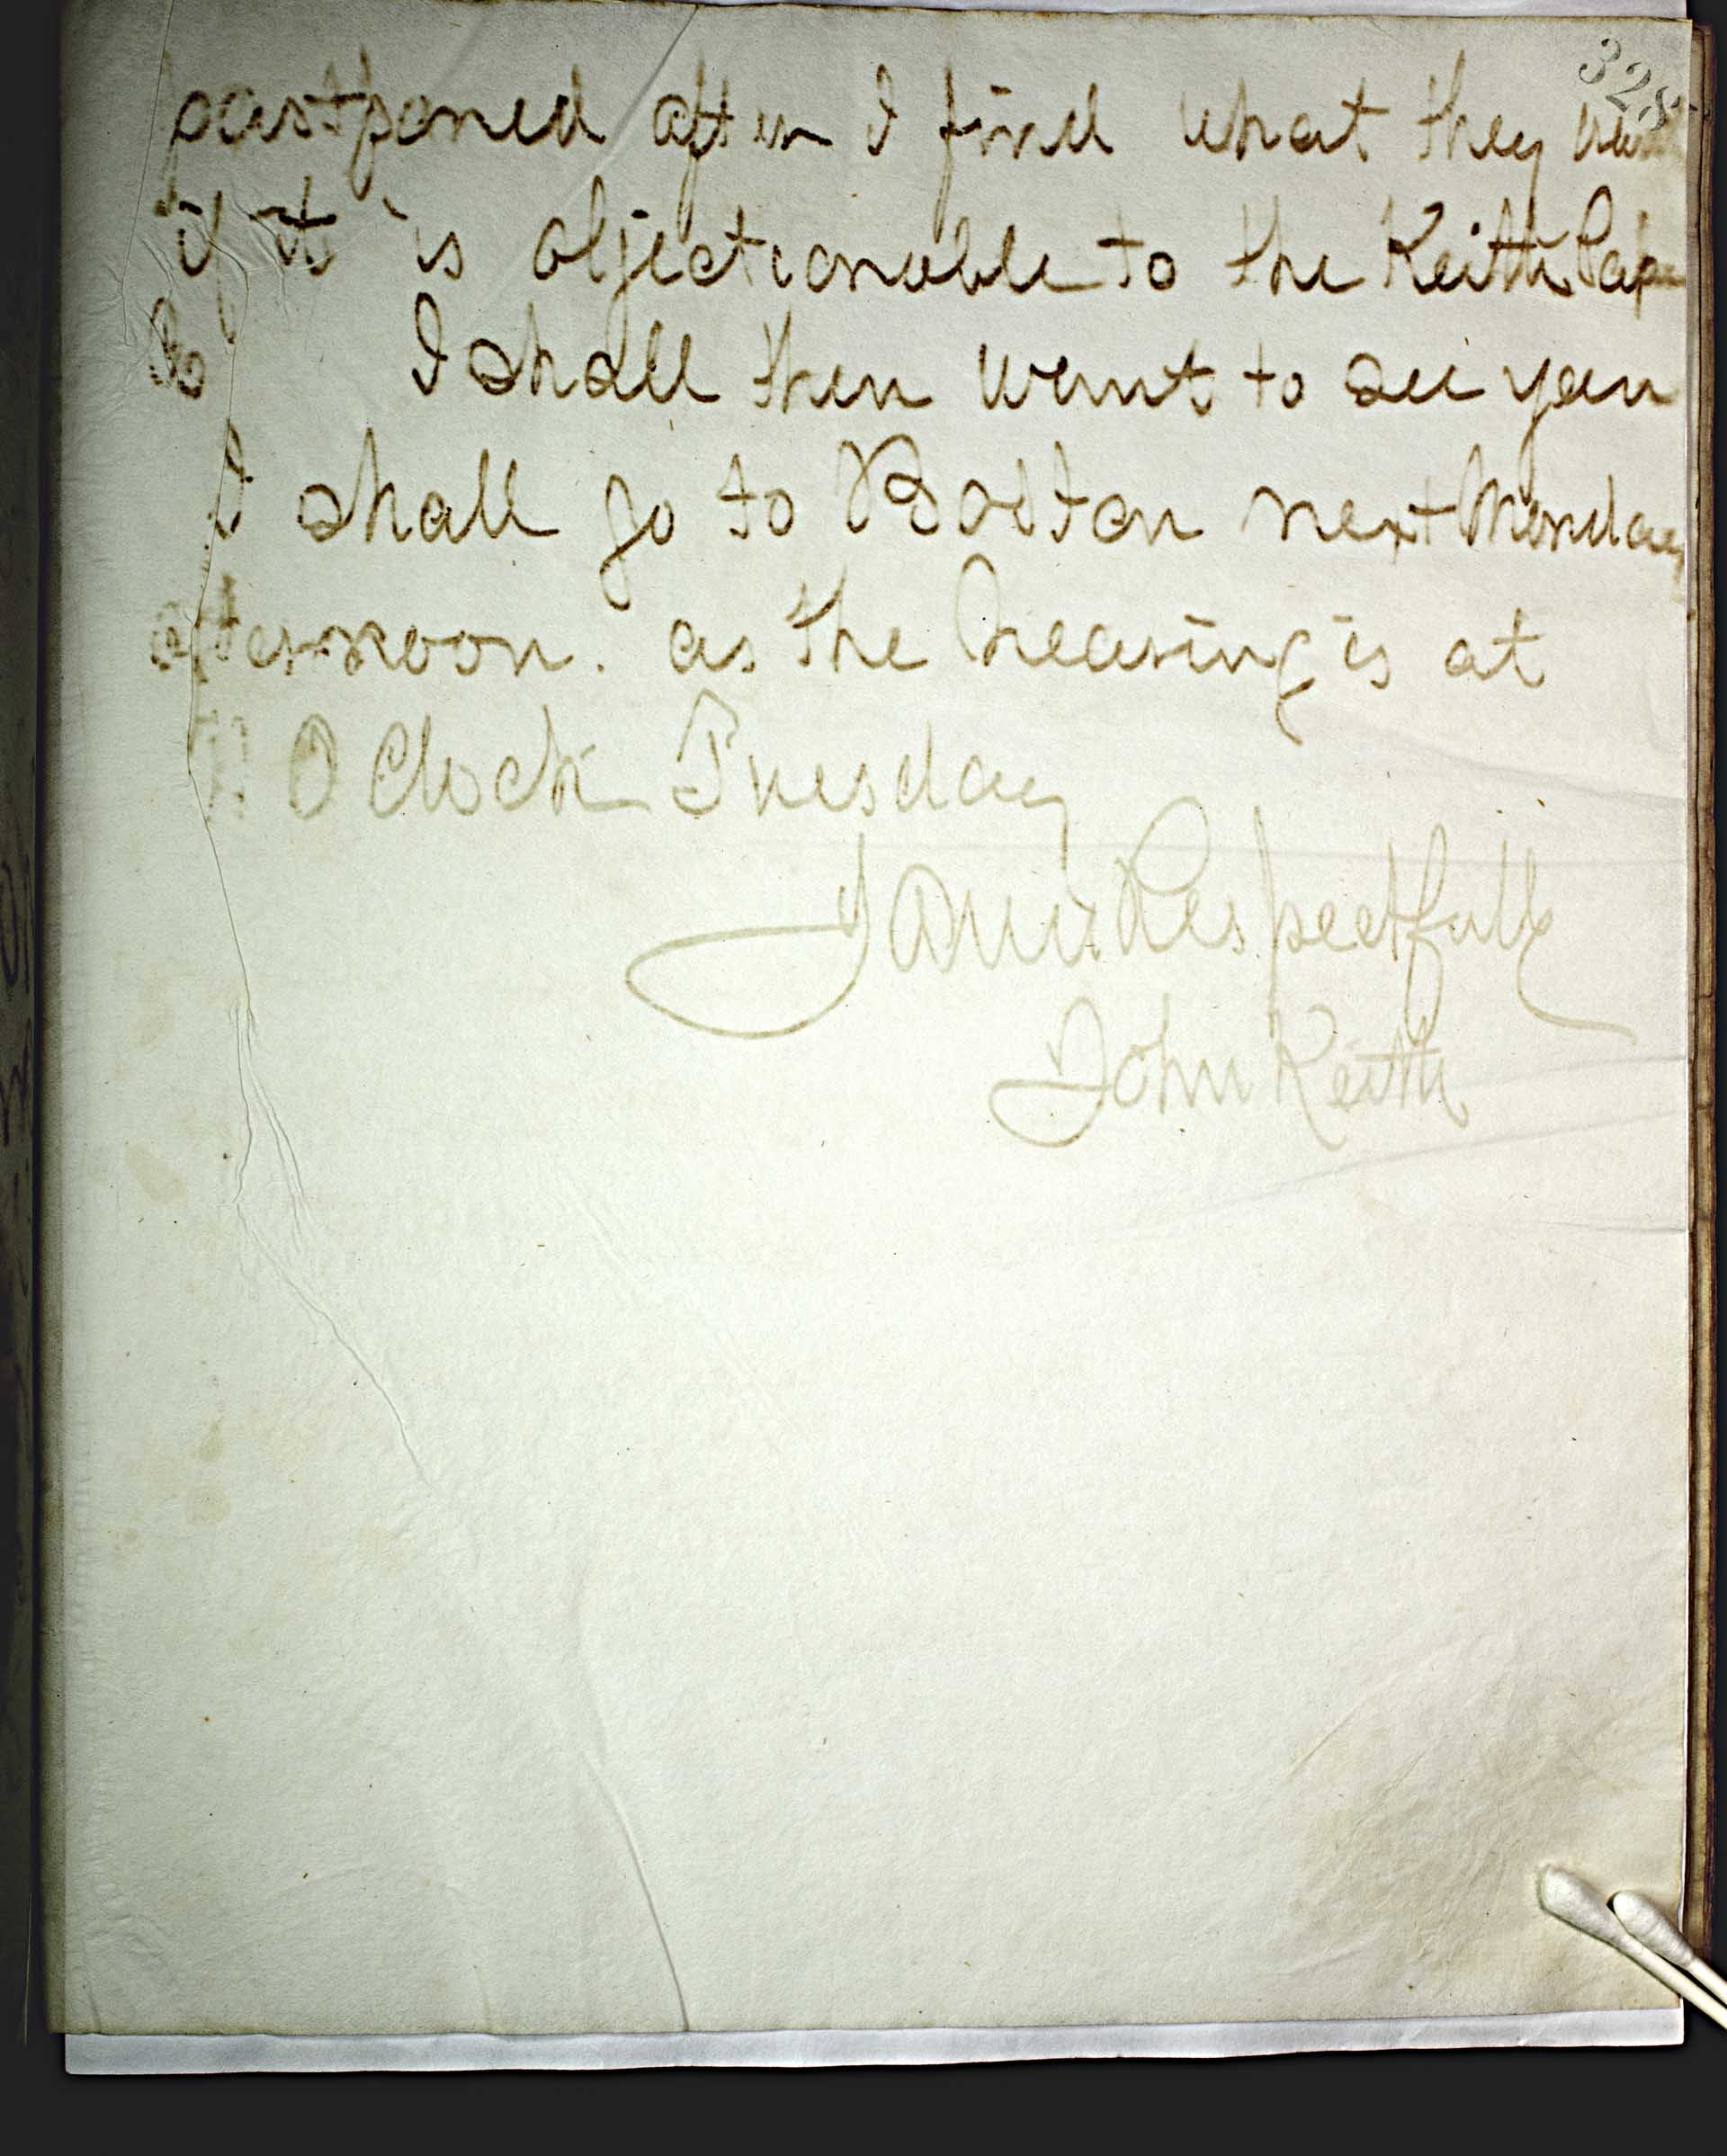 328
postponed after I find what they
if it is objectionable to the Keith Pape
Co I shall then want to see you
I shall go to Boston next Monday
afternoon. as the hearing is at
11 O Clock Tuesday
Yours Respectfully
John Keith